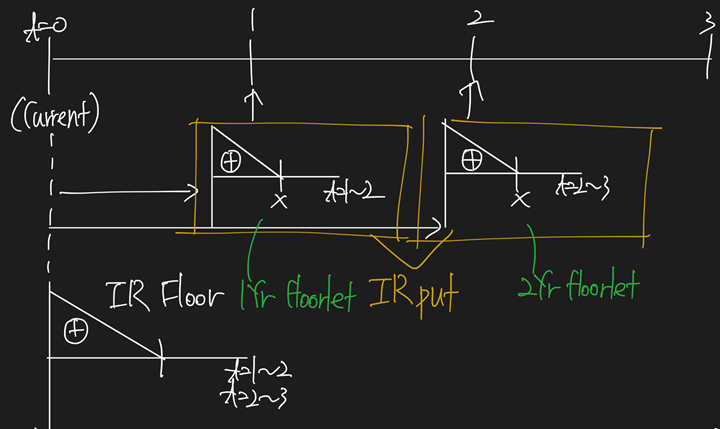 t=0
1
2
3
(Current)
X
t=1~2
X
t=2~3
IR Floor
1Yr floorlet
IR put
2Yr floorlet
t=1~2
t=2~3